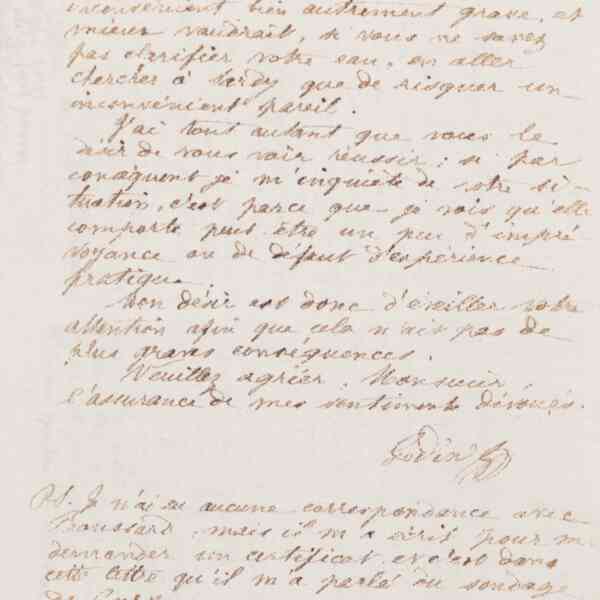 inconvénient bien autrement grave, et
mieux vaudrait, si vous ne savez
pas clarifier votre eau, en aller
chercher à Sardy que de risquer un
inconvénient pareil.
J'ai tout autant que vous le
désir de vous voir réussir ; si par
conséquent je m'inquiète de votre si-
tuation, c'est parce que je vois qu'elle
comporte peut être un peu d'impré-
voyance ou de défaut d'expérience
pratique.
Mon désir est donc d'éveiller votre
attention afin que cela n'ait pas de
plus graves conséquences.
Veuillez agréer, Monsieur,
l'assurance de mes sentiments dévoués.
Godin
P.S. Je n'ai eu aucune correspondance avec
Boussard, mais il m'a écrit pour me
demander un certificat, et c'est dans
cette lettre qu'il m'a parlé du sondage